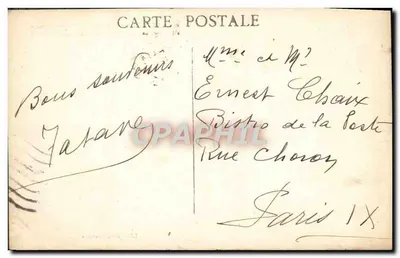 CARTE POSTALE
Bons souvenirs
Tatave
Mme et Mr
Ernest Chaix
Bistro de la Poste
Rue Choron
Paris IX
CPARAMA